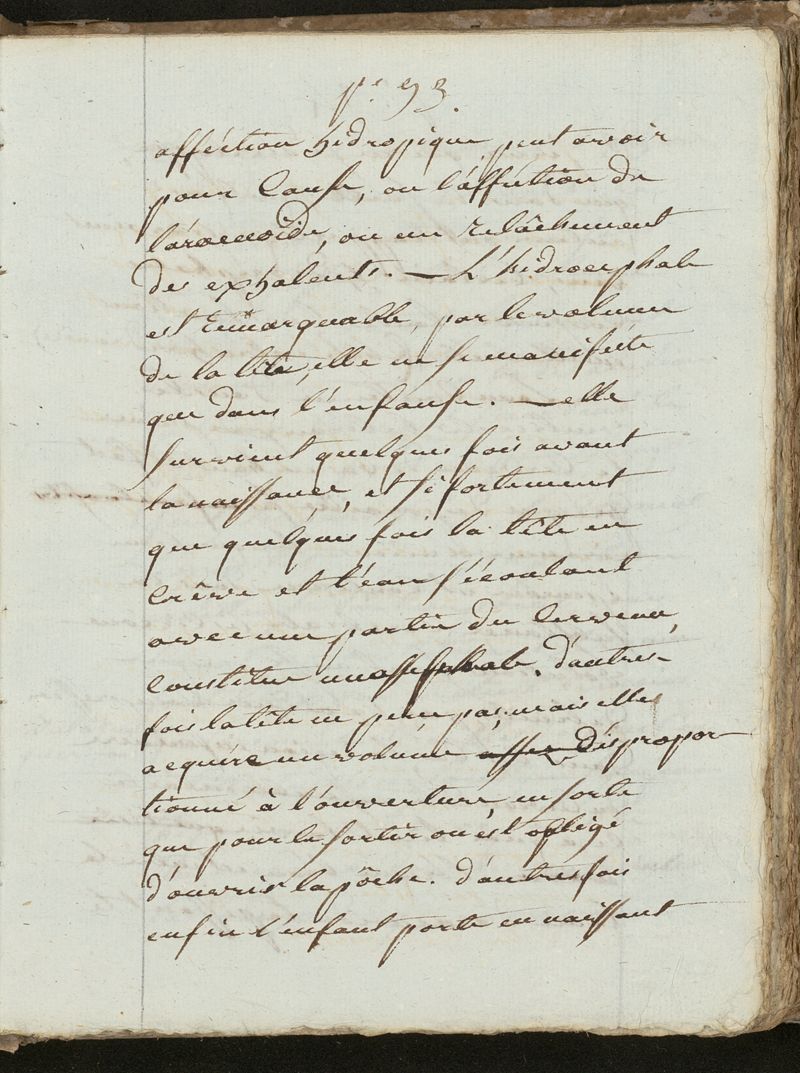 pe 93.
afféction hidropique, peut avoir
pour Cause, ou l'affection de
l'aracnoïde, ou un relâchement
des exhalents. — L'hidrocephale
est remarquable, par le volume
de la tête, elle ne se manifeste
que dans l'enfanse. — elle
survient quelques fois avant
la naissance, et si fortement
que quelques fois la tête en
Crêve et l'eau s'écoulant
avec une partie du Cerveau,
Constitue un assefale. d'autres
fois la tête ne perce pas, mais elle
acquiere un volume assez dispropor
tionné à l'ouverture ensorte
que pour le sortir on est obligé
d'ouvrir la pôche. d'autres fois
enfin l'enfant porte en naissant